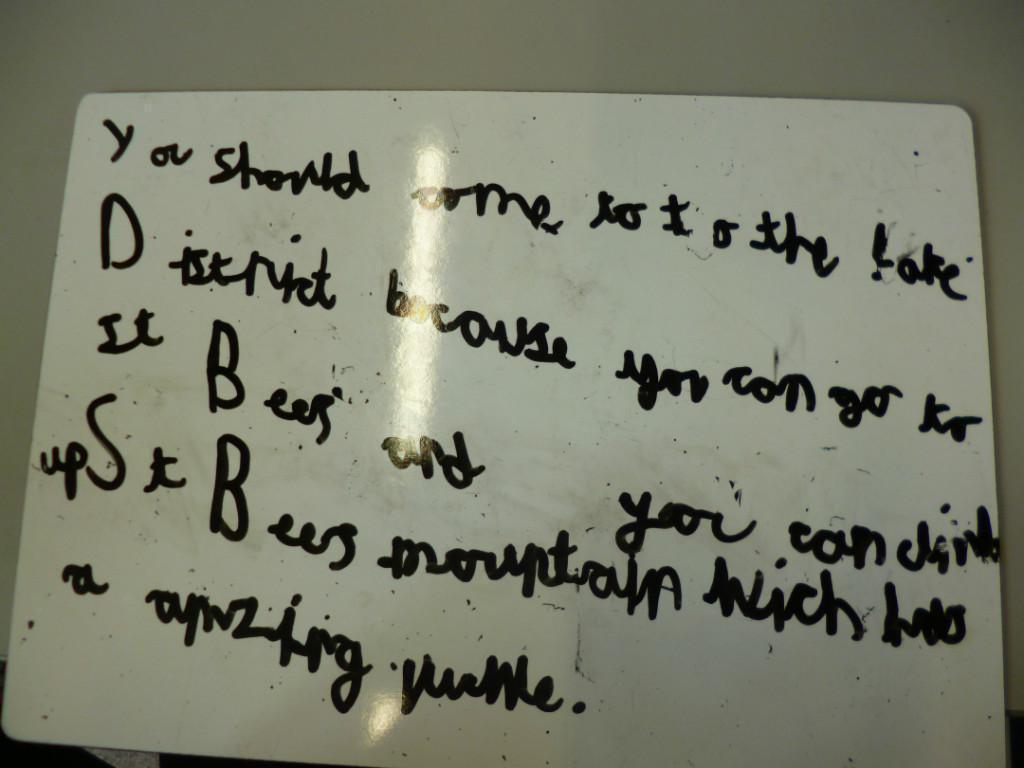 You should come to t o the Lake
District because you can go to
St Bees and you can climb
up St Bees mountain which has
a amzijing